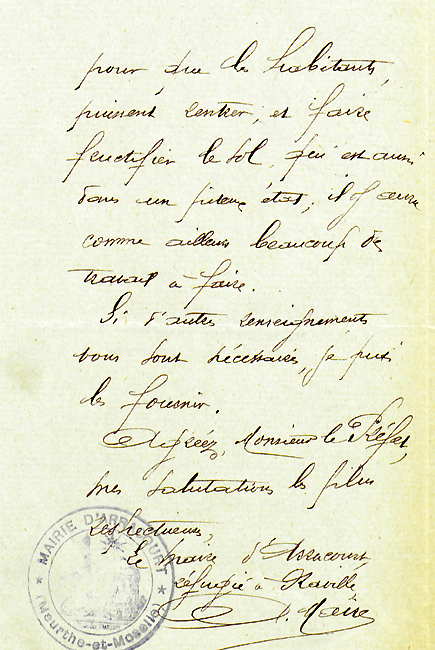 pour que les habitants,
puissent rentrer, et faire
fructifier le sol, qui est aussi
dans un piteux état, il y aura
comme ailleurs beaucoup de
travail à faire.
Si d'autres renseignements
vous sont nécessaires, je puis
les fournir.
Agréez, Monsieur le Préfet,
mes salutations les plus
respectueuses,
Le maire d'Arracourt,
réfugié à Raville
MAIRIE D'ARRACOURT
(Meurthe-et-Moselle)